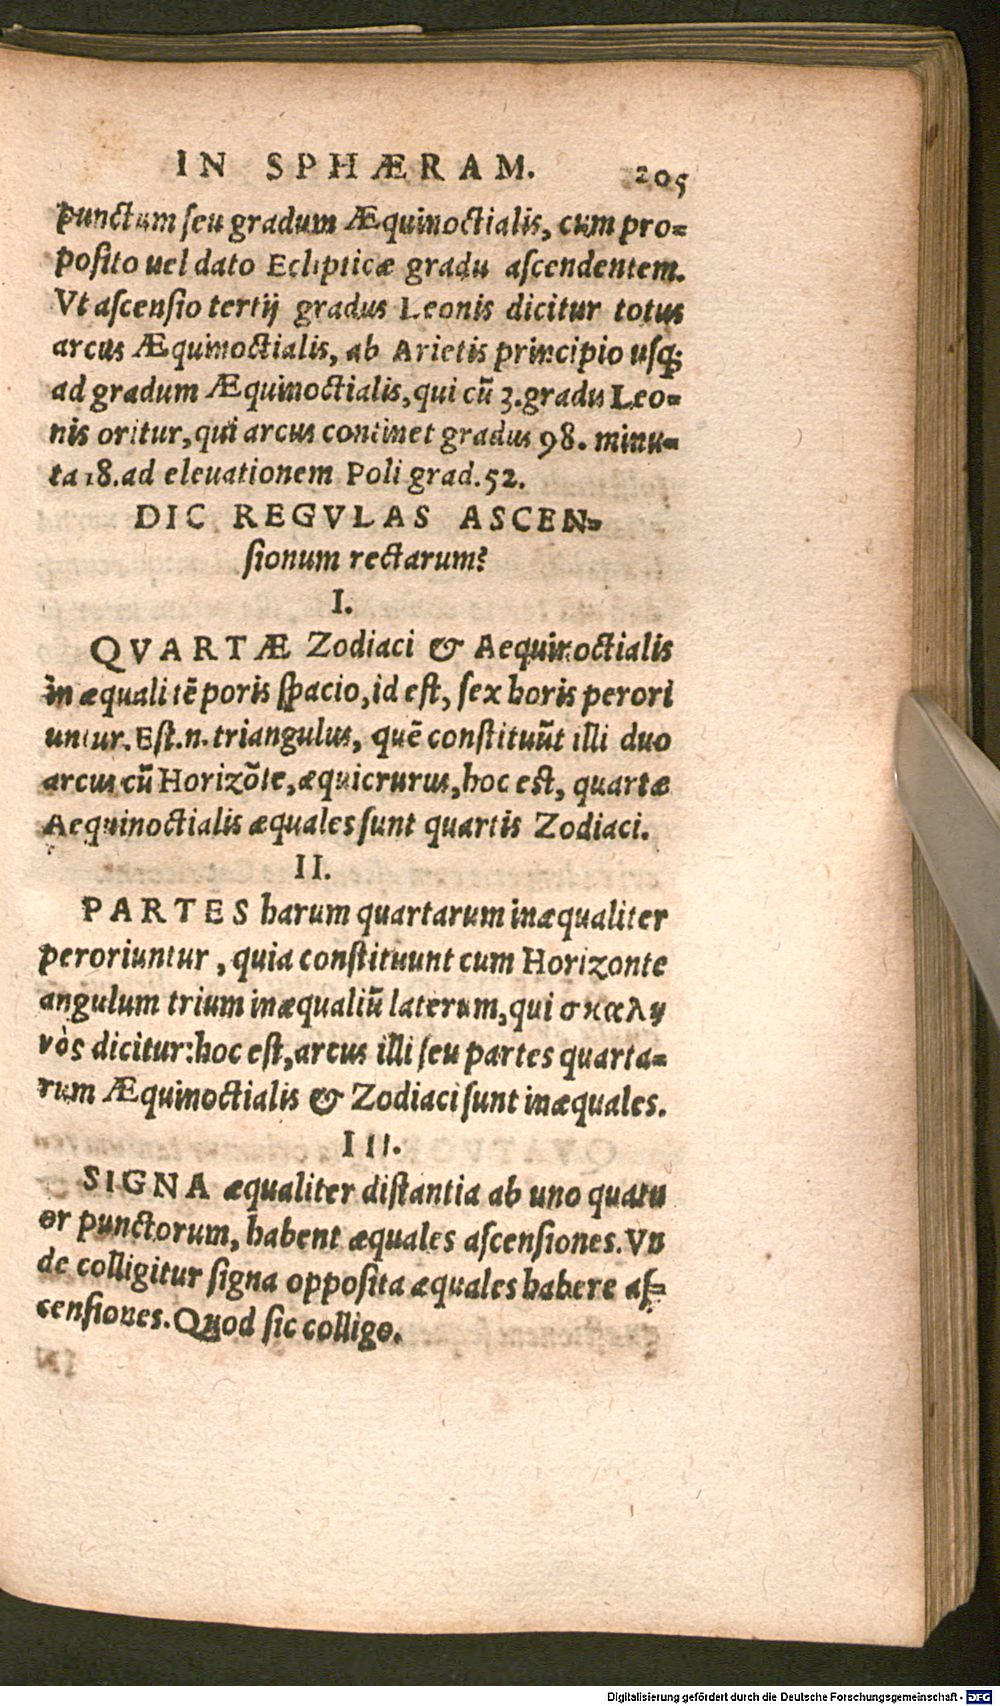 IN SPHÆRAM. 205
punctum ſeu gradum Æquinoctialis, cum pro=
poſito uel dato Eclipticæ gradu aſcendentem.
Vt aſcenſio tertij gradus Leonis dicitur totus
arcus Æquinoctialis, ab Arietis principio uſq;
ad gradum Æquinoctialis, qui cũ 3. gradu Leo=
nis oritur, qui arcus continet gradus 98. minu=
ta 18. ad eleuationem Poli grad. 52.
DIC REGVLAS ASCEN=
ſionum rectarum?
I.
QVARTÆ Zodiaci & Aequinoctialis
in æquali tẽporis ſpacio, id eſt, ſex horis perori
untur. Eſt.n. triangulus, quẽ conſtituũt illi duo
arcus cũ Horizõte, æquicrurus, hoc est, quartæ
Aequinoctialis æquales ſunt quartis Zodiaci.
II.
PARTES harum quartarum inæqualiter
peroriuntur, quia conſtituunt cum Horizonte
angulum trium inæqualiũ laterum, qui σκαλη
νὸς dicitur: hoc eſt, arcus illi ſeu partes quarta=
rum Æquinoctialis & Zodiaci ſunt inæquales.
III.
SIGNA æqualiter diſtantia ab uno quatu
or punctorum, habent æquales aſcenſiones. Vn
de colligitur ſigna oppoſita æquales habere aſ=
cenſiones. Quod ſic colligo.
Digitalisierung gefördert durch die Deutsche Forschungsgemeinschaft - DFG